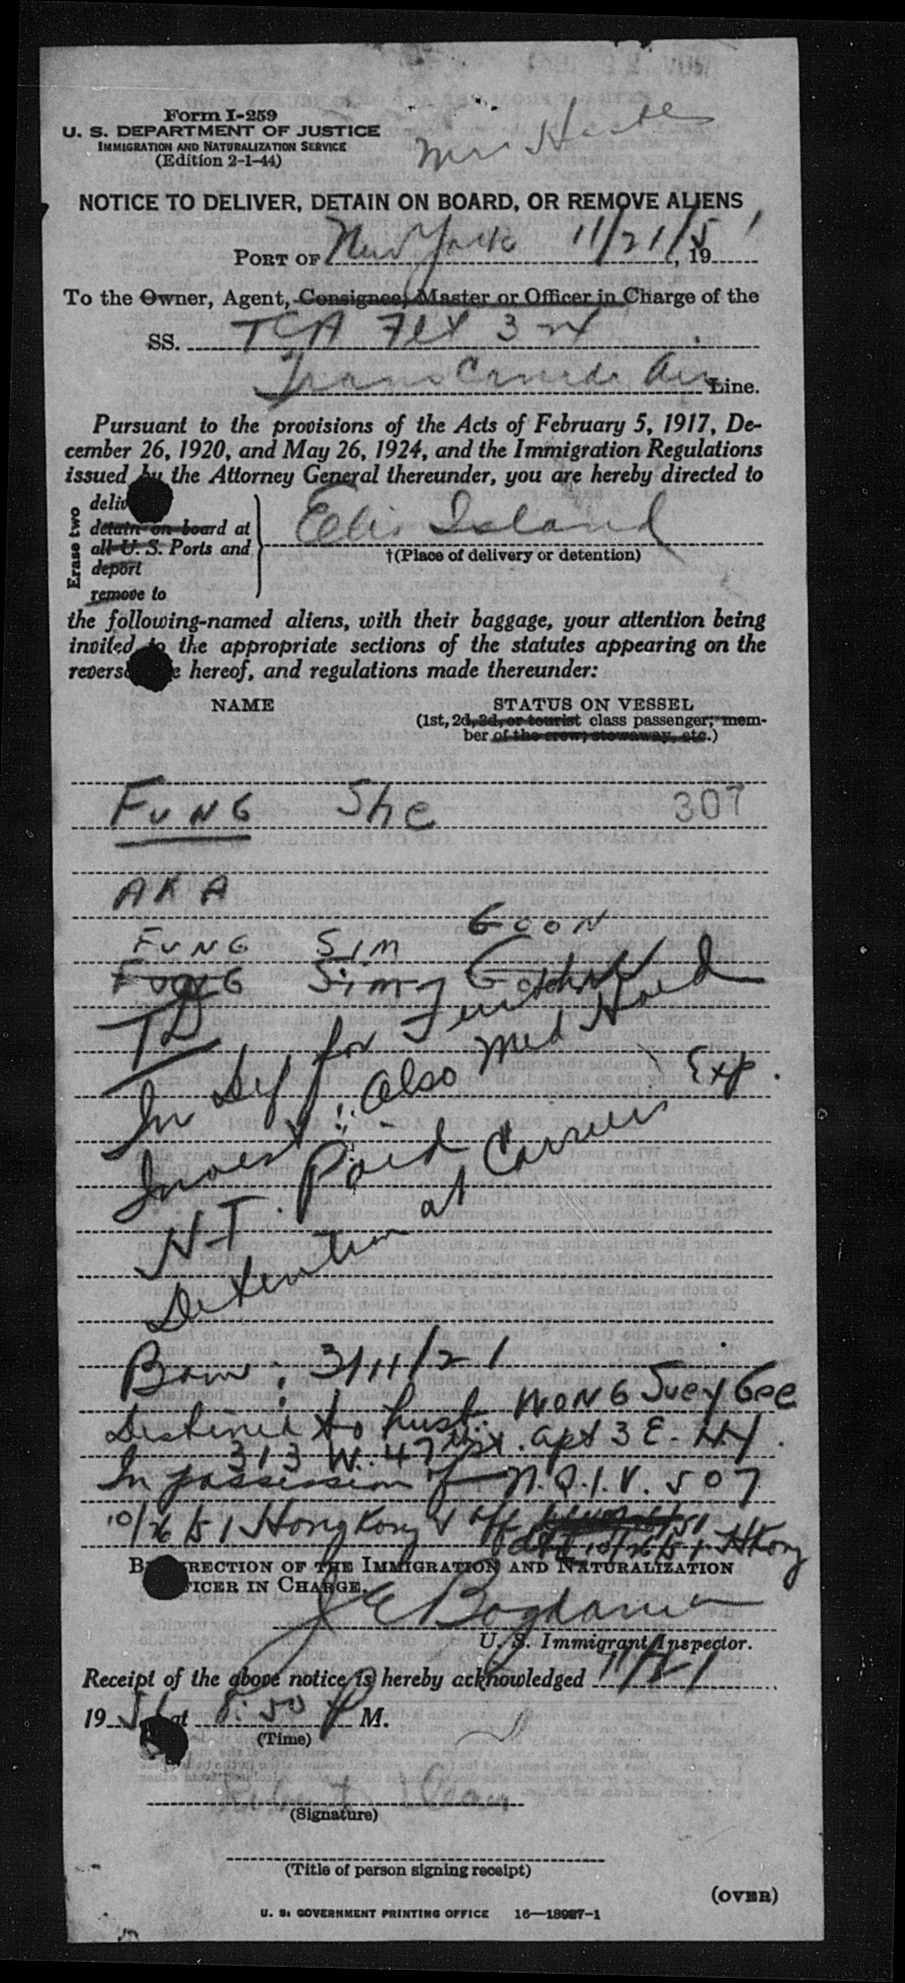 Form I-259
U. S. DEPARTMENT OF JUSTICE
IMMIGRATION AND NATURALIZATION SERVICE
(Edition 2-1-44)
NOTICE TO DELIVER, DETAIN ON BOARD, OR REMOVE ALIENS
PORT OF New York 11/21/, 1951
To the Owner, Agent, Consignee, Master or Officer in Charge of the
SS. TCA Flt 324
Trans Canada Air Line.
Pursuant to the provisions of the Acts of February 5, 1917, De-
cember 26, 1920, and May 26, 1924, and the Immigration Regulations
issued by the Attorney General thereunder, you are hereby directed to
Erase two
deliv
detain on board at
all U. S. Ports and
deport
remove to
Ellis Island
†(Place of delivery or detention)
the following-named aliens, with their baggage, your attention being
invited to the appropriate sections of the statutes appearing on the
revers e hereof, and regulations made thereunder:
NAME STATUS ON VESSEL
(1st, 2d, 3d, or tourist class passenger; mem-
ber of the crew; stowaway, etc.)
FUNG She 307
AKA
FUNG SIM GOON
FUNG Sim
TD
In Def for Further
Invest; Also Med Hold
H.T. Paid
Detention at Carriers Exp.
Born: 3/11/21
Destined to husb. WONG Suey Gee
313 W. 47th St. apt 3E - NY.
In possession of N.Q.I.V. 507
10/26/51 Hong Kong & Aff
10/26/51 HKong
B RECTION OF THE IMMIGRATION AND NATURALIZATION
FICER IN CHARGE.
U. S. Immigrant Inspector.
Receipt of the above notice is hereby acknowledged 11/21
1951 at 8:50 P M.
(Time)
(Signature)
(Title of person signing receipt)
(OVER)
U. S. GOVERNMENT PRINTING OFFICE 16—18987-1